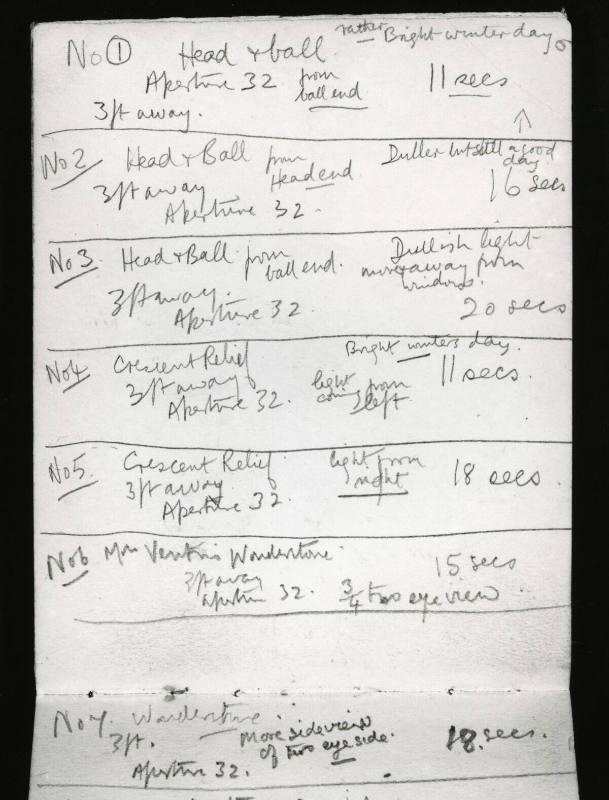 No 1 Head & ball rather Bright winter day
Aperture 32 from ball end 11 secs
3ft away.
No 2 Head & Ball from Head end Duller but still a good day.
3ft away 16 secs
Aperture 32.
No 3. Head & Ball. from ball end. Dullish light
3ft away. more away from windows.
Aperture 32. 20 secs
No 4 Crescent Relief Bright winters day.
3ft away light coming from left 11 secs.
Aperture 32.
No 5. Crescent Relief. light from right 18 secs.
3ft away
Aperture 32.
No 6 Mrs Ventris Wonderstone. 15 secs
3ft away
aperture 32. 3/4 two eye view
No 7. Wonderstone.
3ft. More side view of two eye side. 18. secs.
Aperture 32.